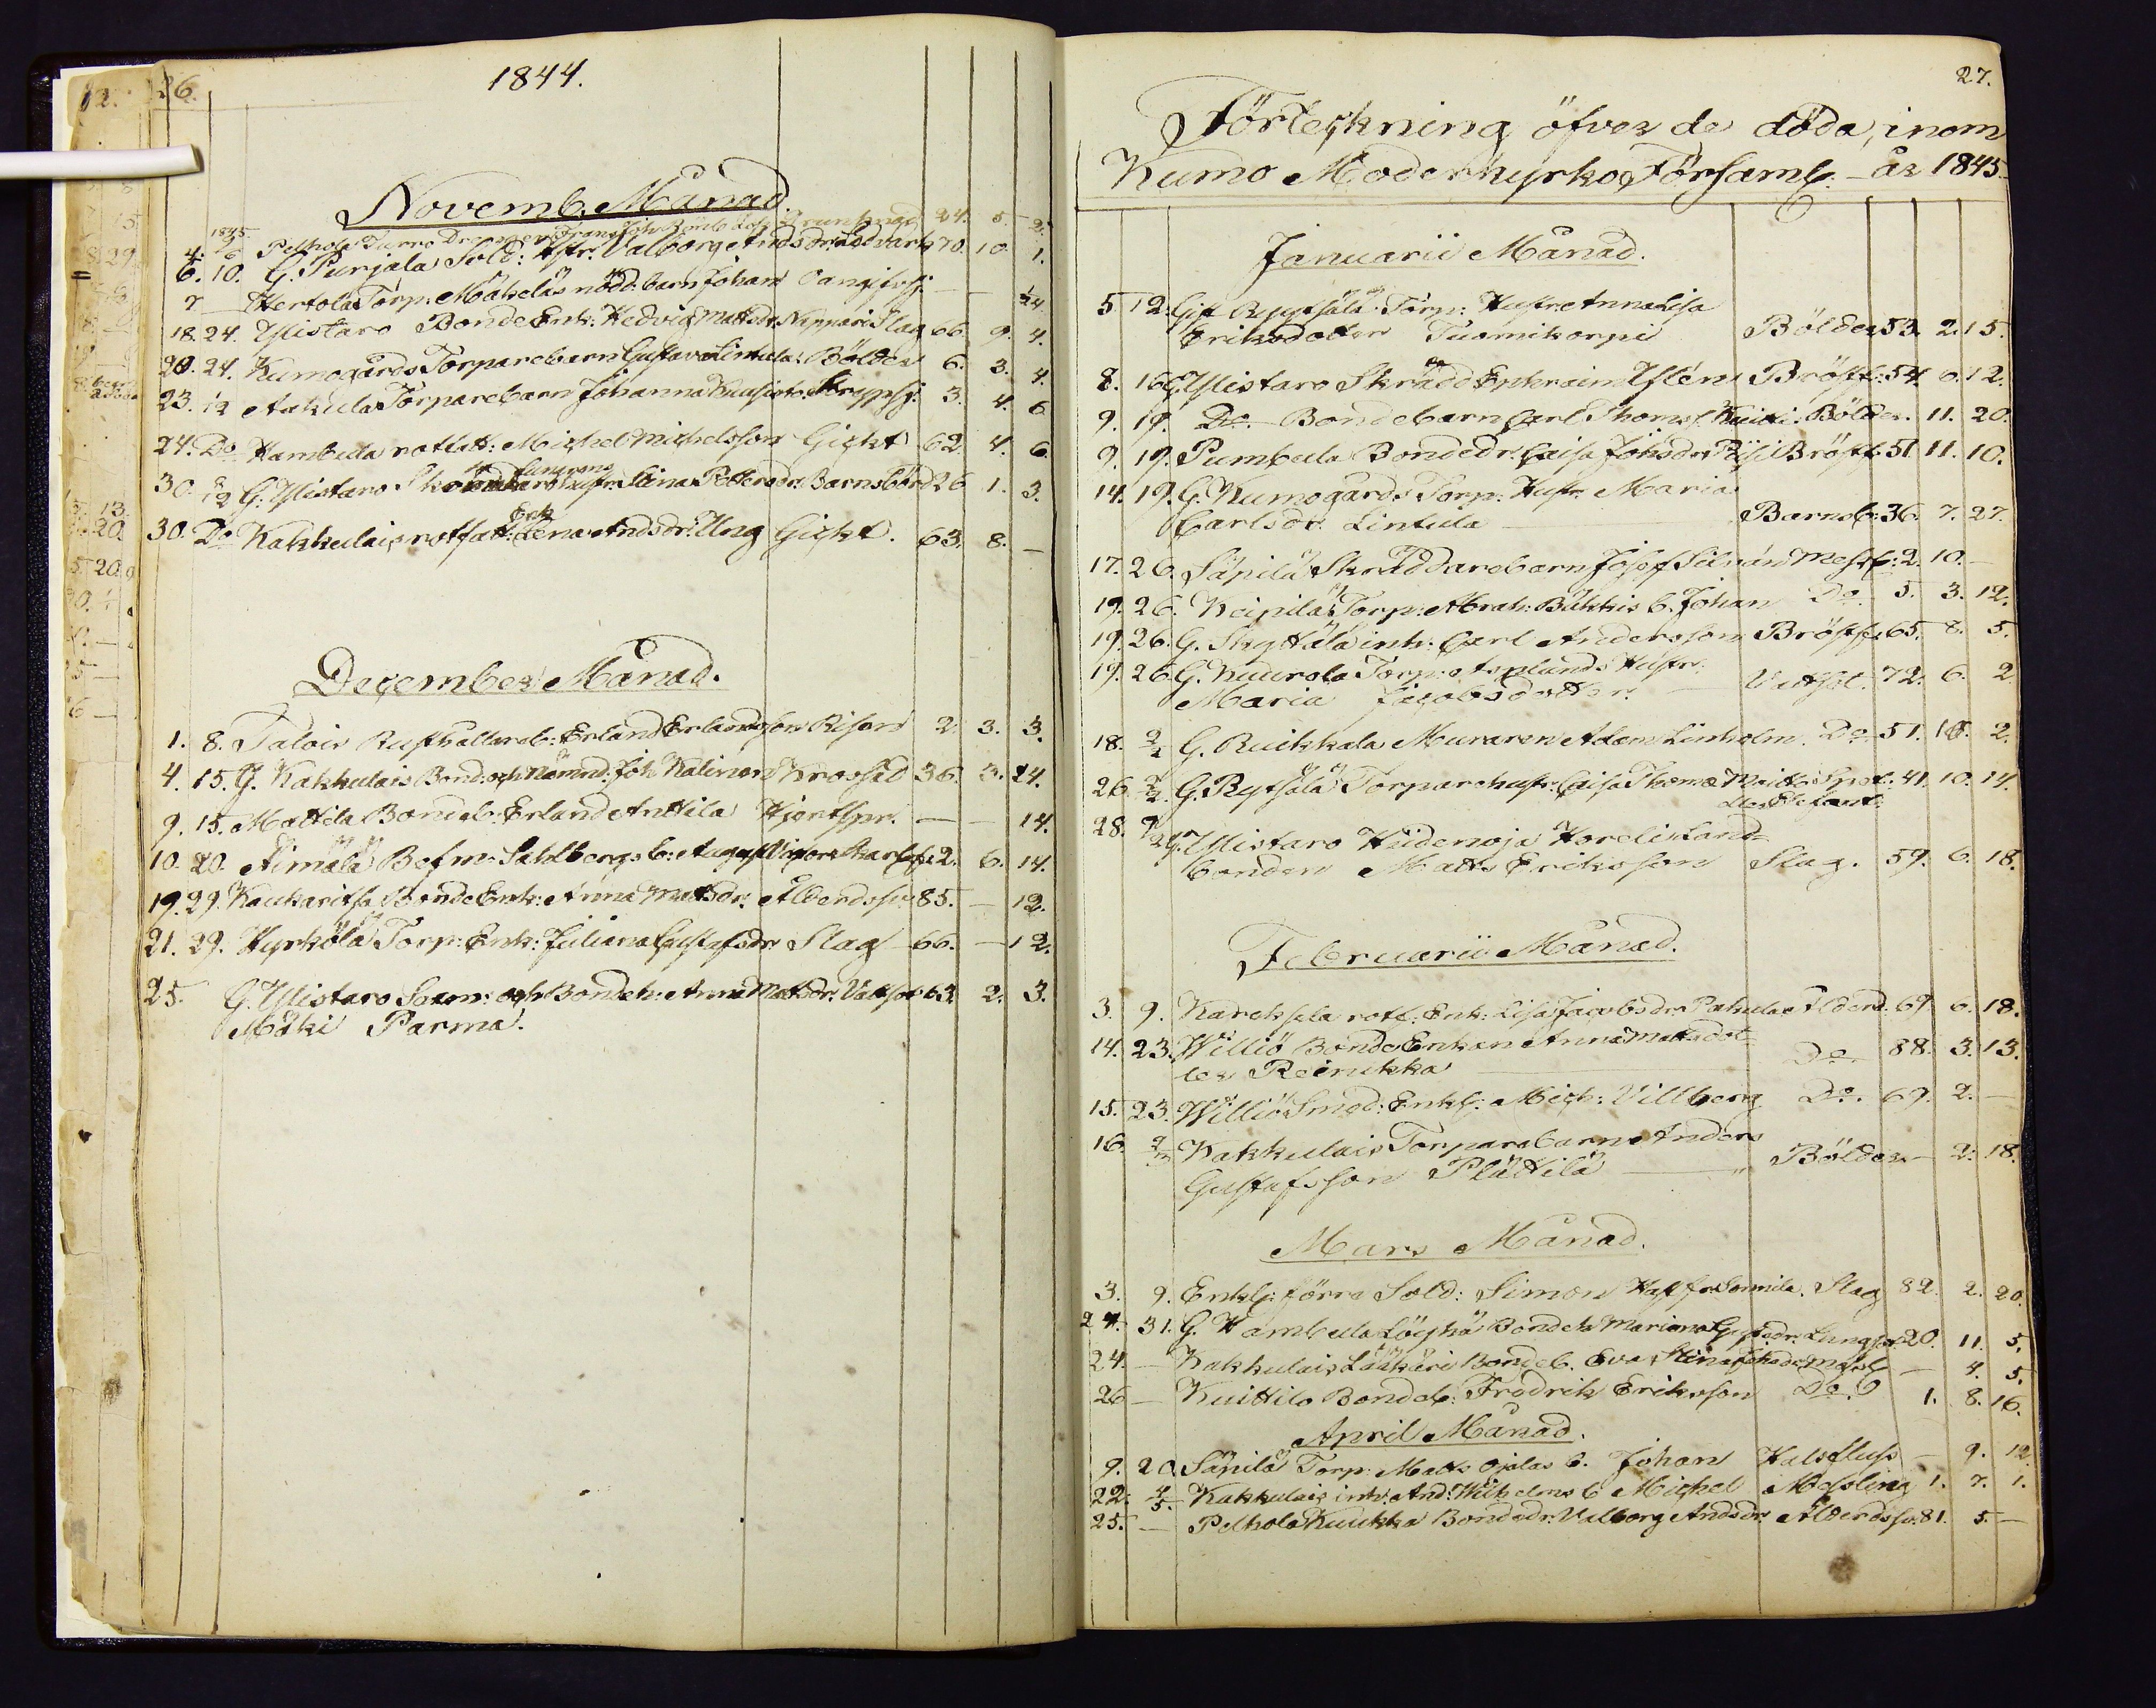 26.
1844.
Novemb. Månad.
1845.
4. Pelhola Turro Drunknad 24. 5 2.
6. 10. G. Purjala Sold: Hstr. Valborg Andsdr. Lodvark 70. 10. 1.
7 — Hertola Torp: Mäkeläs nödd. barn Johan — — 1/24
18. 24. Yllistaro Bonde Enk: Hedvig Mattsdr. Nippari Slag 66. 9. 4.
20. 24. Kumogårds Torparebarn Gustava Lintula: Bölder 6. 3. 4.
23. 1/12 Aakula Torparebarn Johanna 3. 4. 6
24. Do Kambilla rotfatt: Michel Michelsson Gickt 62. 4. 6
30. 8/12 G. Yllistaro hustr. Stina Pettersdr. Barnsbörd 26 1. 3.
Enk
30. Do Kakkulais rotfatt: Lena Andsdr. Ung Gickt. 63. 8. —
December Månad.
1. 8. Talois Rusthållareb: Erland Erlandsson Risfori 2. 3. 3.
4. 15. G. Kakkulais Bond: och Nämnd: Joh Kalinen Krossad 36. 3. 24.
9. 15. Mattila Bondeb: Erland Anttila Hjertspr. — — 14.
10. 20. Aimälä Befm: Sahlbergs b: August Skarlf: 2. 6. 14.
19. 29. Kaukaritsa Bonde Enk: Anna Mattsdr. Ålderdsv: 85. — 12.
21. 29. Kyrkölä Torp: Enk: Juliana Gustafsdr Slag 66. — 12.
25. G. Yllistaro Bondeh: Anna Matsdr. Vattsot 63 2. 3.
Mäki Parma.
27.
Förteckning öfver de döda, inom
Kumo Moderkyrko Församl. år 1845.
Januarii Månad.
5. 12. Gift Ryytsälä Torp: Hustr. Anna Lisa
Eriksdotter Tuomikorpi Bölder 53. 2. 15.
8. 16. G. Yllistaro Skrädd Ephraim Uflén Bröstf: 54 0. 12.
9. 19. Do. Bondebarn Carl Thomss. Kuitti Bölder. 11. 20.
9. 19. Pumbula Bondedr. Caisa Johsdr. Bröstf. 51 11. 10.
14. 19. G. Kumogårds Torp: Hustr. Maria
Carlsdr. Lintula — Barnsb: 36. 7. 27.
17. 26. Säpilä Skräddarebarn Josef Messl: 2. 10. —
19. 26. Keipilä Torp: Abrah: Bukkis b. Johan Do 5. 3. 12.
19. 26. G. inh: Carl Andersson Bröstf 65. 8. 5.
19. 26. G. Kuurola Torp: Asplunds Hustr.
Maria Jacobsdotter. — Vattsot. 72. 6. 2
18. 2/2 G. Ruikkala Muraren Adam Linholm. Do 51. 10. 2.
26. 2/2. G. Rytsälä Torparehustr: Caisa Thomæ 41. 10. 14.
28. 9/2 G. Yllistaro Hiidenoja Land=
bonden Matts Eriksson Slag. 59. 6. 18.
Februarii Månad.
3. 9. Kareksela rotf: Enk: Lisa Jacobsdr. Pakula Ålderd. 67 6. 18.
14. 23. Williö Bonde Enkan Anna Mattsdot=
ter Reinikka — Do 88. 3. 13.
15. 23. Williö Smed: Enkl: Mich: Villberg Do. 69. 2. —
16. 2/3 Kakkulais Torparebarn Anders
Gustafsson Plättilä — " Bölder — 2. 18.
Mars Månad.
3. 9. Enkl: förra Sold: Simon Slag 82. 2. 20.
24. 31. G. Kambula Löyhä Bondeh Mariana Lungsot 20. 11. 5.
24. — Kakkulais Lääkäri Bondeb. Eva Stina Johsdr. Mässl — 4. 5.
26 — Kuittilo Bondeb: Fredrik Eriksson Do. 1. 8. 16.
April Månad.
9. 20. Säpilä Torp: Matts Ojalas b. Johan Halsfluss — 9. 12
22. 4/5. Kakkulais inh: And: Wilhelms b Michel Mässling 1. 7. 1.
25. — Pelhola Kuukka Bondedr: Valborg Andsdr Ålderdsv: 81. 5. —